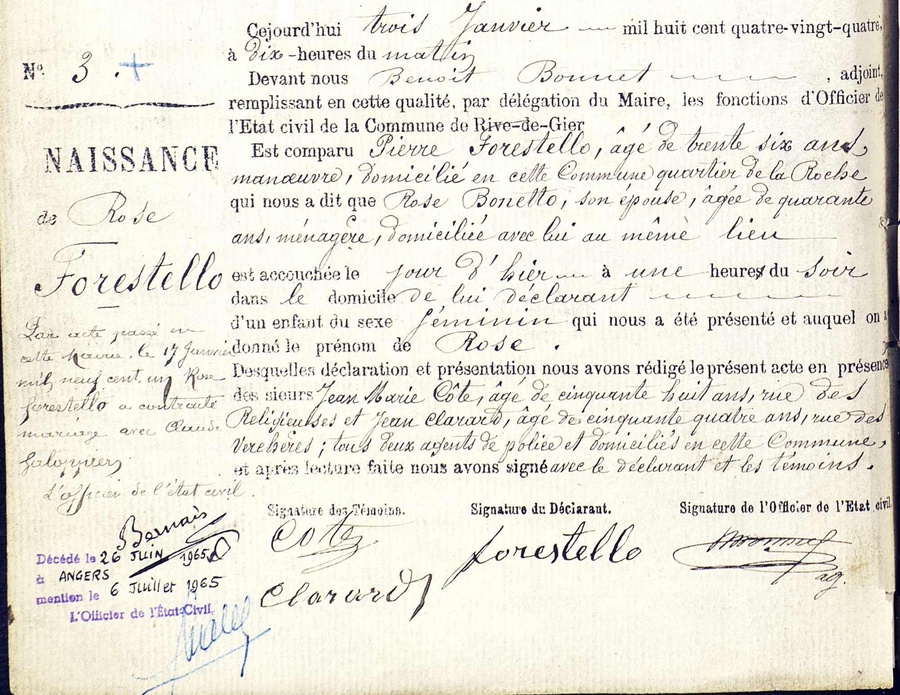 Nº 3.
NAISSANCE
de Rose
Forestello
Par acte passé en
cette Mairie, le 17 Janvier
mil neuf cent un Rose
forestello a contracté
mariage avec Claude
Galoppier
L'officier de l'état civil.
Décédé le 26 JUIN 1965
à ANGERS
mention le 6 Juillet 1965
L'Officier de l'État Civil,
Cejourd'hui trois Janvier mil huit cent quatre-vingt-quatre,
à dix heures du matin
Devant nous Benoit Bonnet, adjoint,
remplissant en cette qualité, par délégation du Maire, les fonctions d'Officier de
l'Etat civil de la Commune de Rive-de-Gier
Est comparu Pierre Forestello, âgé de trente six ans,
manœuvre, domicilié en cette Commune quartier de la Roche
qui nous a dit que Rose Bonetto, son épouse, âgée de quarante
ans, ménagère, domiciliée avec lui au même lieu
est accouchée le jour d'hier à une heure du soir
dans le domicile de lui déclarant
d'un enfant du sexe féminin qui nous a été présenté et auquel on a
donné le prénom de Rose.
Desquelles déclaration et présentation nous avons rédigé le présent acte en présence
des sieurs Jean Marie Côte, âgé de cinquante huit ans, rue des
Religieuses et Jean Clarard, âgé de cinquante quatre ans, rue des
Verchères; tous deux agents de police et domiciliés en cette Commune,
et après lecture faite nous avons signé avec le déclarant et les témoins.
Signature des Témoins. Signature du Déclarant. Signature de l'Officier de l'Etat civil.
Cote forestello
Clarard